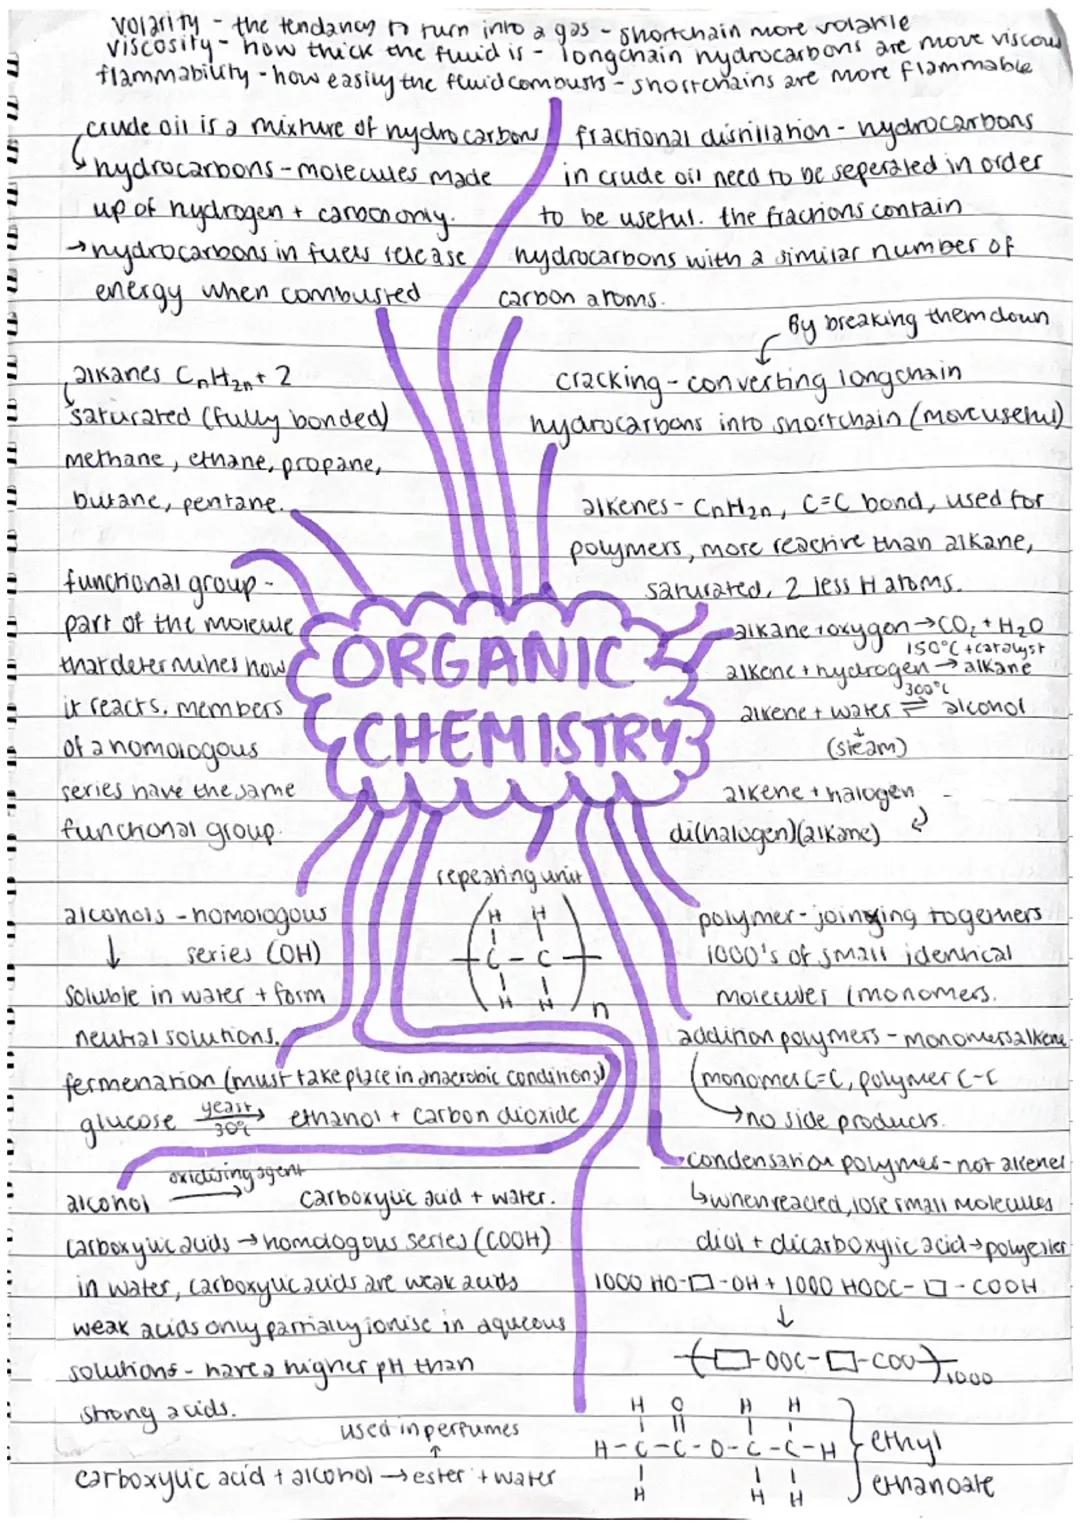 volarity - the tendancy to turn into a gas - shortchain more volatile
viscosity - how thick the fluid is - longchain hydrocarbons are more viscous
flammability - how easily the fluid combusts - shortchains are more flammable
crude oil is a mixture of hydrocarbons
↳ hydrocarbons - molecules made
up of hydrogen + carbon only.
→ hydrocarbons in fuels release
energy when combusted
fractional distillation - hydrocarbons
in crude oil need to be seperated in order
to be useful. the fractions contain
hydrocarbons with a similar number of
carbon atoms.
By breaking them down
cracking - converting longchain
hydrocarbons into shortchain (more useful)
alkanes CnH2n+2
saturated (fully bonded)
methane, ethane, propane,
butane, pentane.
alkenes - CnH2n, C=C bond, used for
polymers, more reactive than alkane,
saturated, 2 less H atoms.
functional group -
part of the molecule
that determines how
it reacts. members
of a homologous
series have the same
functional group.
ORGANIC
CHEMISTRY
alkane + oxygen → CO2 + H2O
150°C + catalyst
alkene + hydrogen → alkane
300°C
alkene + water ⇌ alcohol
(steam)
alkene + halogen
di(halogen)(alkane)
repeating unit
H H
C - C
H H
n
alcohols - homologous
series (OH)
↓
soluble in water + form
neutral solutions.
polymer - joining togethers
1000's of small identical
molecules (monomers.
addition polymers - monomers alkene
(monomer C=C, polymer C-C
→ no side products.
fermentation (must take place in anaerobic conditions)
yeast
glucose → ethanol + carbon dioxide
30°C
condensation polymer - not alkenes
↳ when reacted, lose small molecules
diol + dicarboxylic acid → polyester
1000 HO-□-OH + 1000 HOOC-□-COOH
↓
(□-OOC-□-COO)1000
oxidising agent
alcohol → carboxylic acid + water.
carboxylic acids → homologous series (COOH)
in water, carboxylic acids are weak acids
weak acids only partially ionise in aqueous
solutions - have a higher pH than
strong acids.
used in perfumes
↑
carboxylic acid + alcohol → ester + water
H O H H
H-C-C-O-C-C-H
H H H
ethyl
ethanoate